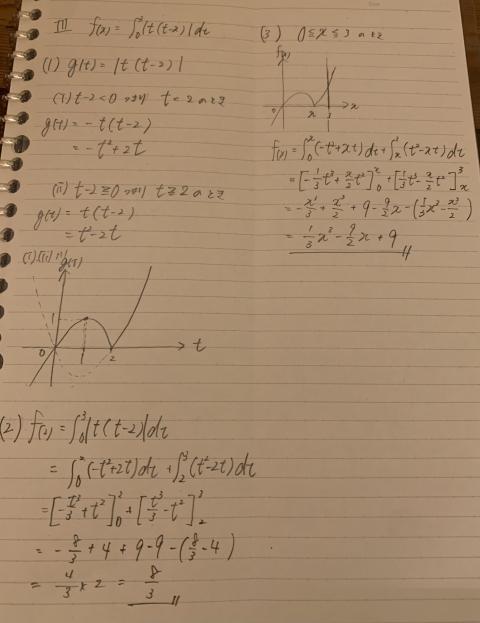 III f(x) = ∫₀³|t(t-2)|dt
(1) g(t) = |t(t-2)|
(i) t-2<0 つまり t<2のとき
g(t) = -t(t-2)
= -t²+2t
(ii) t-2≧0 つまり t≧2のとき
g(t) = t(t-2)
= t²-2t
(i),(ii)より
g(t)
1
0
2
t
(2) f(2) = ∫₀³|t(t-2)|dt
= ∫₀²(-t²+2t)dt + ∫₂³(t²-2t)dt
= [-t³/3 + t²]₀² + [t³/3 - t²]₂³
= -8/3 + 4 + 9 - 9 - (8/3 - 4)
= 4/3 × 2 = 8/3
(3) 0≦x≦3のとき
f(x)
0
x
3
x
f(x) = ∫₀ˣ(-t²+xt)dt + ∫ₓ³(t²-xt)dt
= [-1/3t³ + x/2t²]₀ˣ + [1/3t³ - x/2t²]ₓ³
= -x³/3 + x³/2 + 9 - 9/2x - (1/3x³ - x³/2)
= 1/3x³ - 9/2x + 9